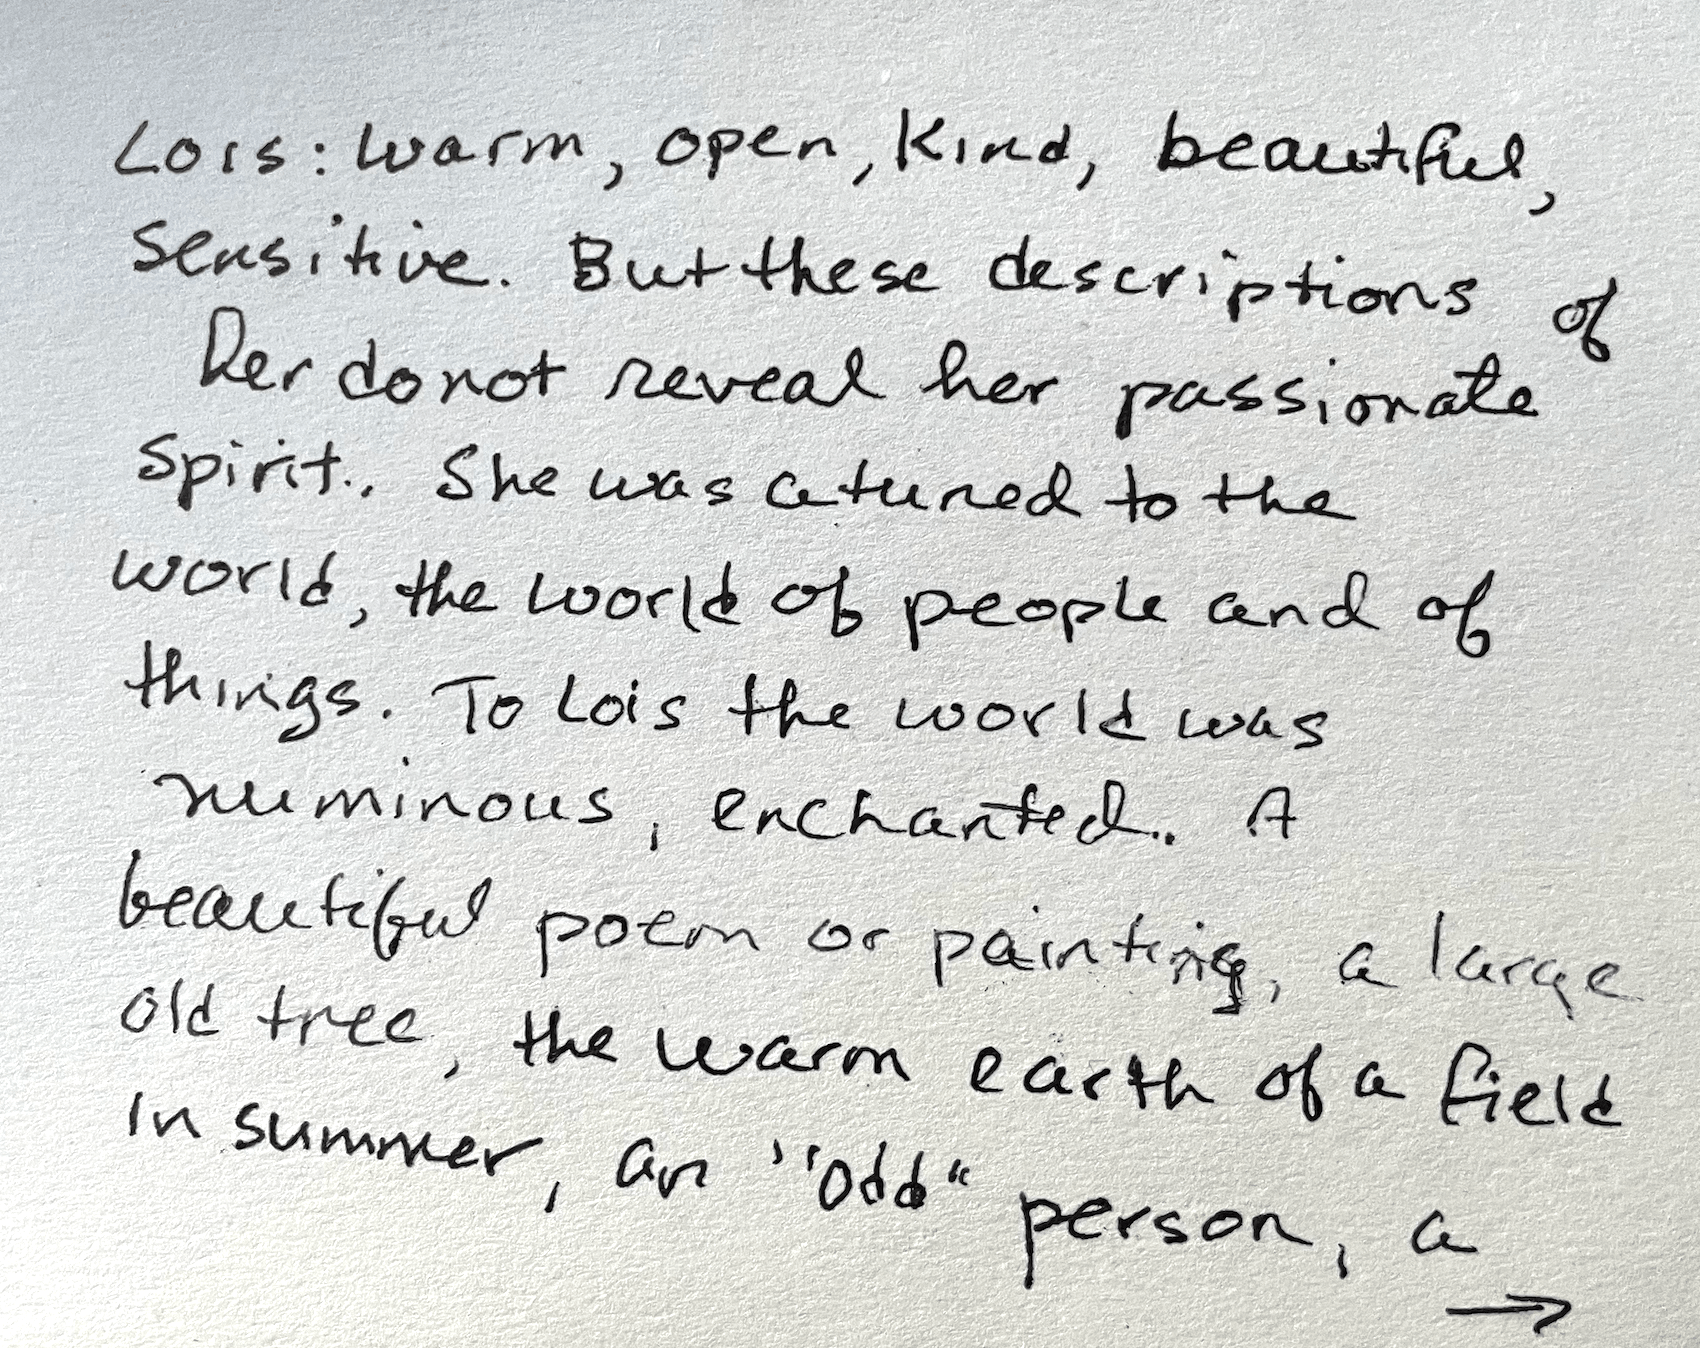 Lois: warm, open, kind, beautiful,
sensitive. But these descriptions of
her do not reveal her passionate
spirit.. She was atuned to the
world, the world of people and of
things. To Lois the world was
numinous, enchanted.. A
beautiful poem or painting, a large
old tree, the warm earth of a field
in summer, an "odd" person, a
→